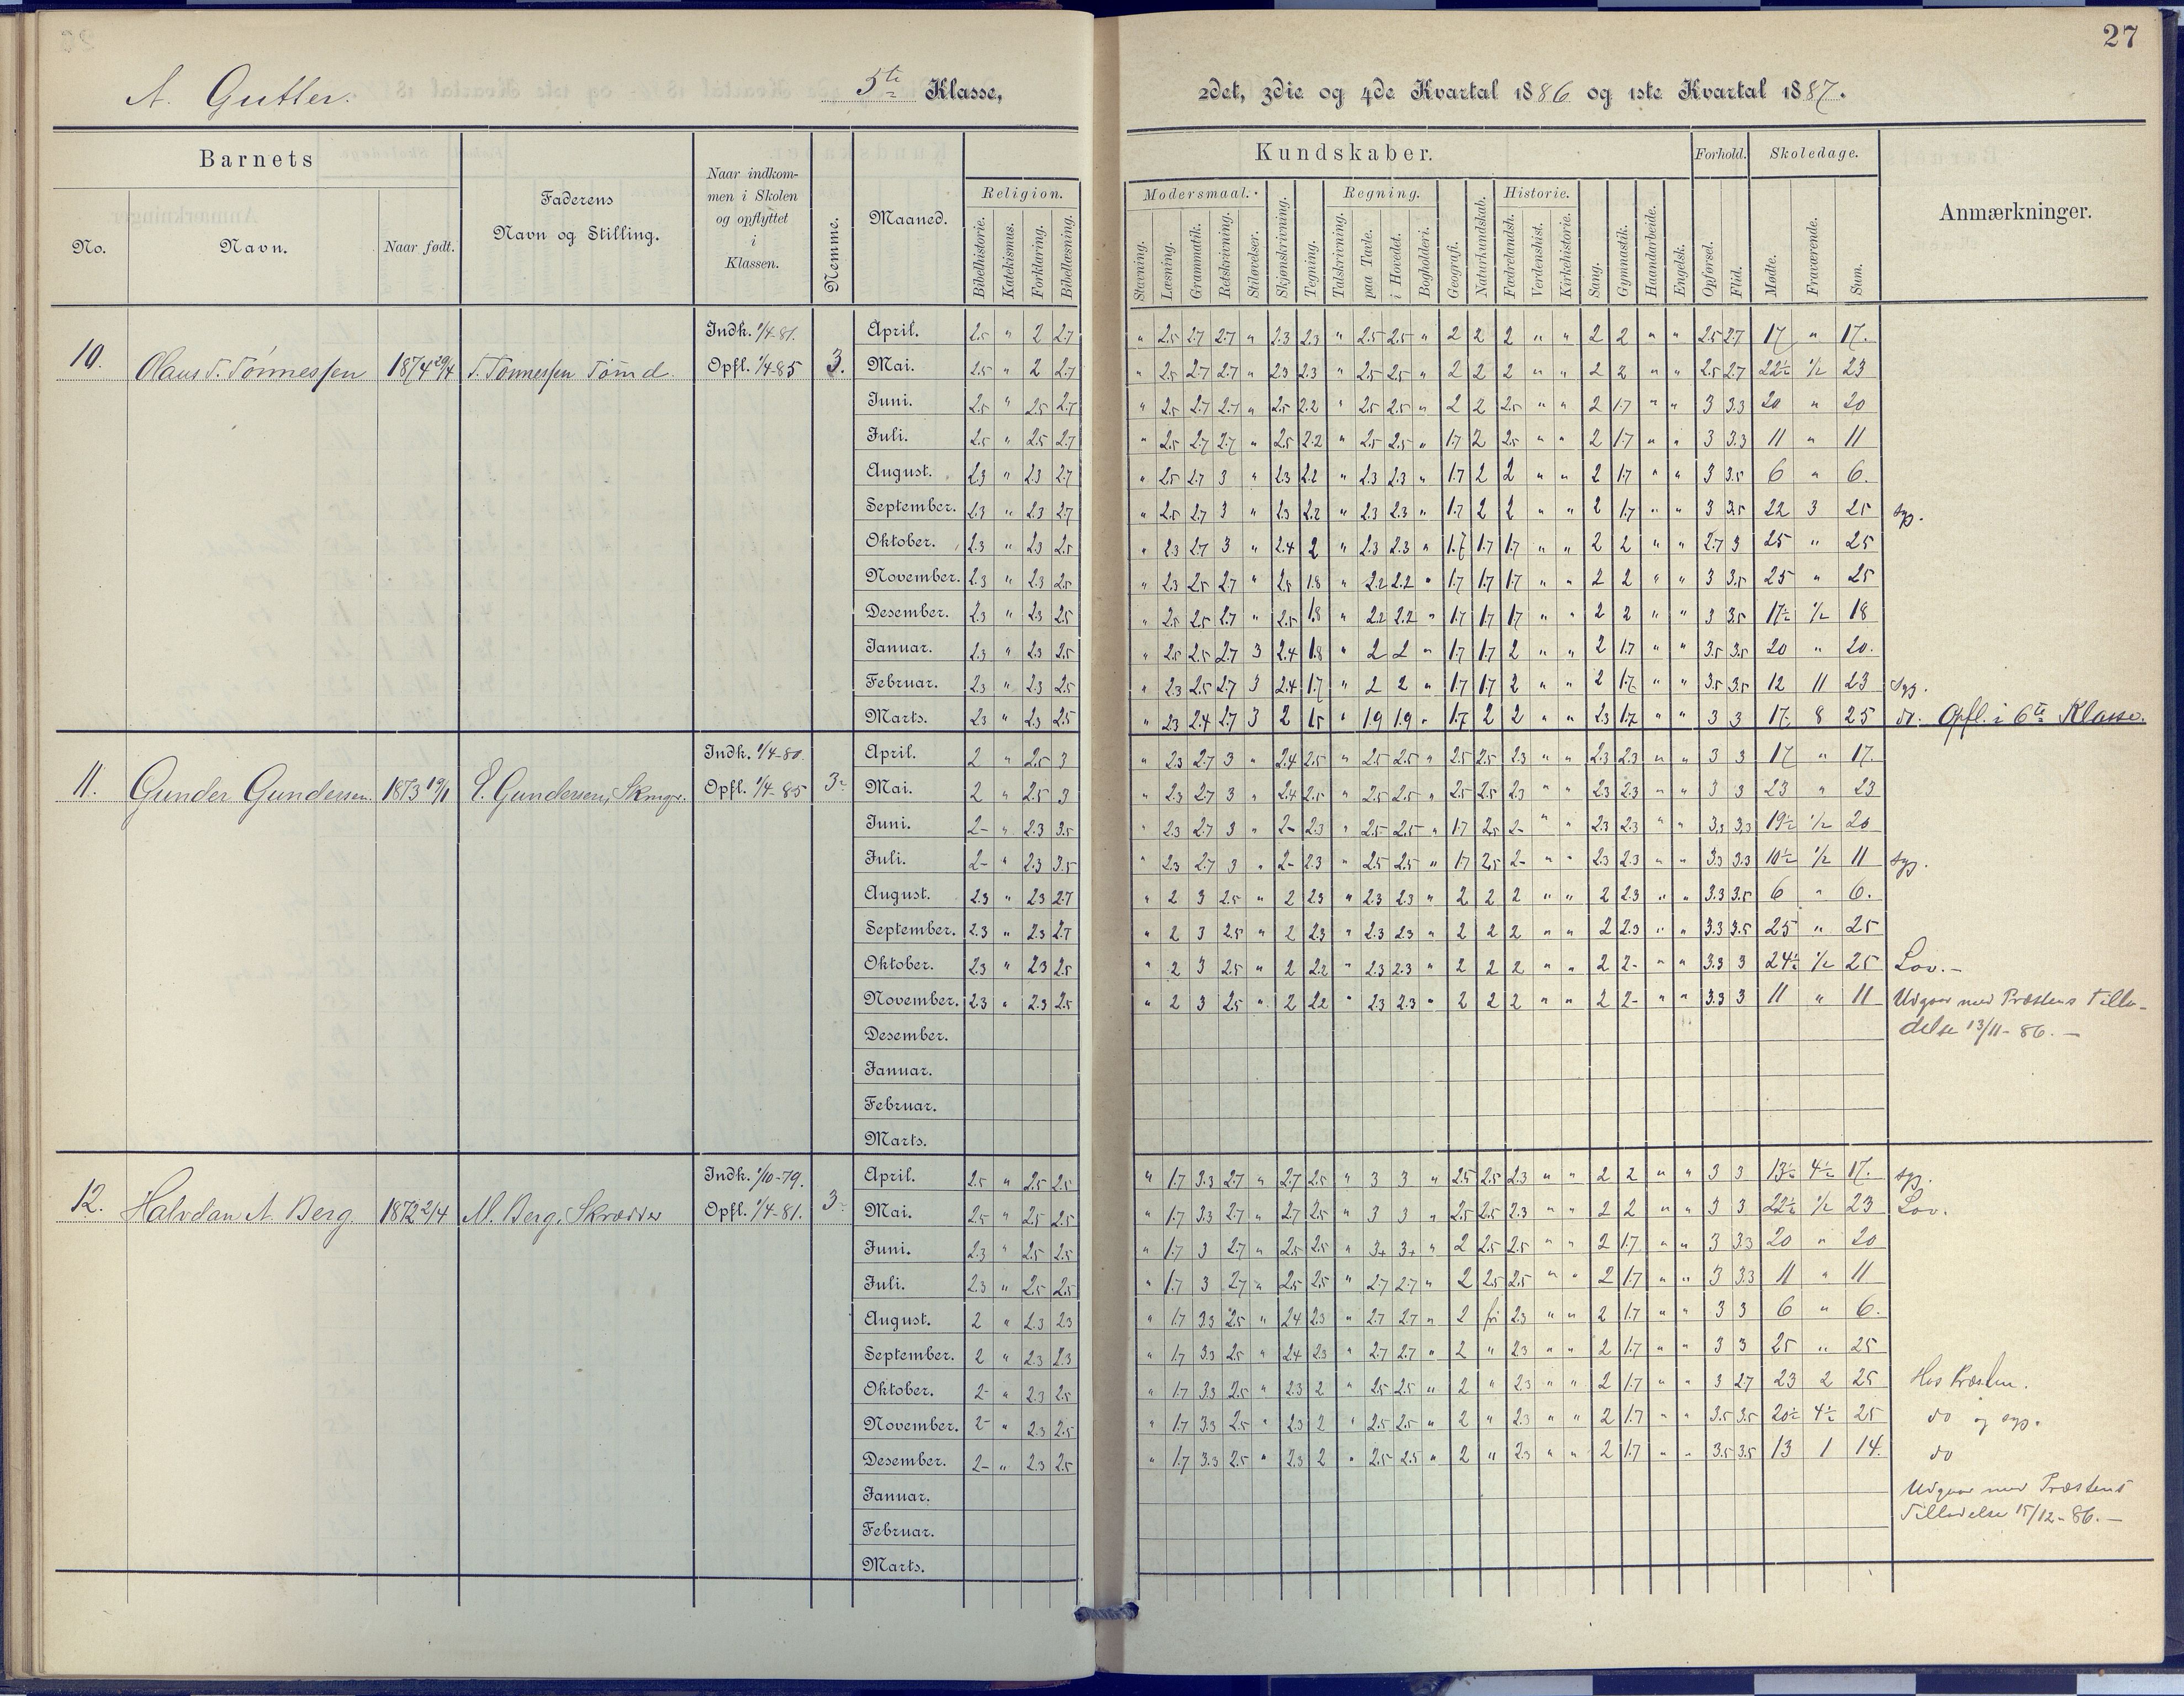 27
A. Gutter. 5te Klasse, 2det, 3die og 4de Kvartal 1886 og 1ste Kvartal 1887.
Barnets
No. Navn. Naar født.
Faderens
Navn og Stilling.
Naar indkom-
men i Skolen
og opflyttet
i
Klassen.
Nemme.
Maaned.
Religion.
Bibelhistorie. Katekismus. Forklaring. Bibellæsning.
Kundskaber. Forhold. Skoledage.
Modersmaal. Regning. Historie.
Stavning. Læsning. Grammatik. Retskrivning. Stiløvelser. Skjønskrivning. Tegning. Talskrivning. paa Tavle. i Hovedet. Bogholderi. Geografi. Naturkundskab. Fædrelandsh. Verdenshist. Kirkehistorie. Sang. Gymnastik. Haandarbeide. Engelsk. Opførsel. Flid. Mødte. Fraværende. Sum.
Anmærkninger.
Indk. 1/4-81. April. 2.5 " 2 2.7 " 2.5 2.7 2.7 " 2.3 2.3 " 2.5 2.5 " 2 2 2 " " 2 2 " " 2.5 2.7 17 " 17.
10. Olaus T. Tønnessen 1874 29/4 T. Tønnessen Tømd. Opfl. 1/4-85 3. Mai. 2.5 " 2 2.7 " 2.5 2.7 2.7 " 2.3 2.3 " 2.5 2.5 " 2 2 2 " " 2 2 " " 2.5 2.7 22½ ½ 23
Juni. 2.5 " 2.5 2.7 " 2.5 2.7 2.7 " 2.5 2.2 " 2.5 2.5 " 2 2 2.5 " " 2 1.7 " " 3 3.3 20 " 20
Juli. 2.5 " 2.5 2.7 " 2.5 2.7 2.7 " 2.5 2.2 " 2.5 2.5 " 1.7 2 2.5 " " 2 1.7 " " 3 3.3 11 " 11
August. 2.3 " 2.3 2.7 " 2.5 2.7 3 " 2.3 2.2 " 2.3 2.3 " 1.7 2 2 " " 2 1.7 " " 3 3.5 6 " 6.
September. 2.3 " 2.3 2.7 " 2.5 2.7 3 " 2.3 2.2 " 2.3 2.3 " 1.7 2 2 " " 2 1.7 " " 3 3.5 22 3 25 syg.
Oktober. 2.3 " 2.3 2.5 " 2.3 2.7 3 " 2.4 2 " 2.3 2.3 " 1.7 1.7 1.7 " " 2 2 " " 2.7 3 25 " 25
November. 2.3 " 2.3 2.5 " 2.3 2.5 2.7 " 2.5 1.8 " 2.2 2.2 " 1.7 1.7 1.7 " " 2 2 " " 3 3.5 25 " 25
Desember. 2.3 " 2.3 2.5 " 2.5 2.5 2.7 " 2.5 1.8 " 2.2 2.2 " 1.7 1.7 1.7 " " 2 2 " " 3 3.5 17½ ½ 18
Januar. 2.3 " 2.3 2.5 " 2.5 2.5 2.7 3 2.4 1.8 " 2 2 " 1.7 1.7 2 " " 2 1.7 " " 3.5 3.5 20 " 20.
Februar. 2.3 " 2.3 2.5 " 2.3 2.5 2.7 3 2.4 1.7 " 2 2 " 1.7 1.7 2 " " 2 1.7 " " 3.5 3.5 12 11 23 syg.
Marts. 2.3 " 2.3 2.5 " 2.3 2.4 2.7 3 2 1.5 " 1.9 1.9 " 1.7 2 2 " " 2.3 1.7 " " 3 3 17 8 25 do. Opfl. i 6te Klasse.
Indk. 1/4-80. April. 2 " 2.5 3 " 2.3 2.7 3 " 2.4 2.5 " 2.5 2.5 " 2.5 2.5 2.3 " " 2.3 2.3 " " 3 3 17 " 17.
11. Gunder Gundersen. 1873 19/11 E. Gundersen, Skmgr. Opfl. 1/4-85 3- Mai. 2 " 2.5 3 " 2.3 2.7 3 " 2.4 2.5 " 2.5 2.5 " 2.5 2.5 2.3 " " 2.3 2.3 " " 3 3 23 " 23
Juni. 2- " 2.3 3.5 " 2.3 2.7 3 " 2- 2.3 " 2.5 2.5 " 1.7 2.5 2- " " 2.3 2.3 " " 3.3 3.3 19½ ½ 20
Juli. 2- " 2.3 3.5 " 2.3 2.7 3 " 2- 2.3 " 2.5 2.5 " 1.7 2.5 2- " " 2.3 2.3 " " 3.3 3.3 10½ ½ 11 syg.
August. 2.3 " 2.3 2.7 " 2 3 2.5 " 2 2.3 " 2.3 2.3 " 2 2 2 " " 2 2.3 " " 3.3 3.5 6 " 6.
September. 2.3 " 2.3 2.7 " 2 3 2.5 " 2 2.3 " 2.3 2.3 " 2 2 2 " " 2 2.3 " " 3.3 3.5 25 " 25
Oktober. 2.3 " 2.3 2.5 " 2 3 2.5 " 2 2.2 " 2.3 2.3 " 2 2 2 " " 2 2- " " 3.3 3 24½ ½ 25 Lov.-
November. 2.3 " 2.3 2.5 " 2 3 2.5 " 2 2.2 " 2.3 2.3 " 2 2 2 " " 2 2- " " 3.3 3 11 " 11 Udgaar med Præstens Tilla-
Desember. delse 13/11-86.-
Januar.
Februar.
Marts.
Indk. 1/10-79. April. 2.5 " 2.5 2.5 " 1.7 3.3 2.7 " 2.7 2.5 " 3 3 " 2.5 2.5 2.3 " " 2 2 " " 3 3 13½ 4½ 17. syg.
12. Halvdan A. Berg. 1872 2/4 M. Berg, Skrædder Opfl. 1/4-81. 3- Mai. 2.5 " 2.5 2.5 " 1.7 3.3 2.7 " 2.7 2.5 " 3 3 " 2.5 2.5 2.3 " " 2 2 " " 3 3 22½ ½ 23 Lov.
Juni. 2.3 " 2.5 2.5 " 1.7 3 2.7 " 2.5 2.5 " 3+ 3+ " 2 2.5 2.5 " " 2 1.7 " " 3 3.3 20 " 20
Juli. 2.3 " 2.5 2.5 " 1.7 3 2.7 " 2.5 2.5 " 2.7 2.7 " 2 2.5 2.5 " " 2 1.7 " " 3 3.3 11 " 11
August. 2 " 2.3 2.3 " 1.7 3.3 2.5 " 2.4 2.3 " 2.7 2.7 " 2 fri 2.3 " " 2 1.7 " " 3 3 6 " 6.
September. 2 " 2.3 2.3 " 1.7 3.3 2.5 " 2.4 2.3 " 2.7 2.7 " 2 " 2.3 " " 2 1.7 " " 3 3 25 " 25
Oktober. 2- " 2.3 2.5 " 1.7 3.3 2.5 " 2.3 2 " 2.5 2.5 " 2 " 2.3 " " 2 1.7 " " 3 2.7 23 2 25 Hos Præsten.
November. 2- " 2.3 2.5 " 1.7 3.3 2.5 " 2.3 2 " 2.5 2.5 " 2 " 2.3 " " 2 1.7 " " 3.5 3.5 20½ 4½ 25 do og syg.
Desember. 2- " 2.3 2.5 " 1.7 3.3 2.5 " 2.3 2 " 2.5 2.5 " 2 " 2.3 " " 2 1.7 " " 3.5 3.5 13 1 14. do
Januar. Udgaar med Præstens
Februar. Tilladelse 15/12-86.-
Marts.